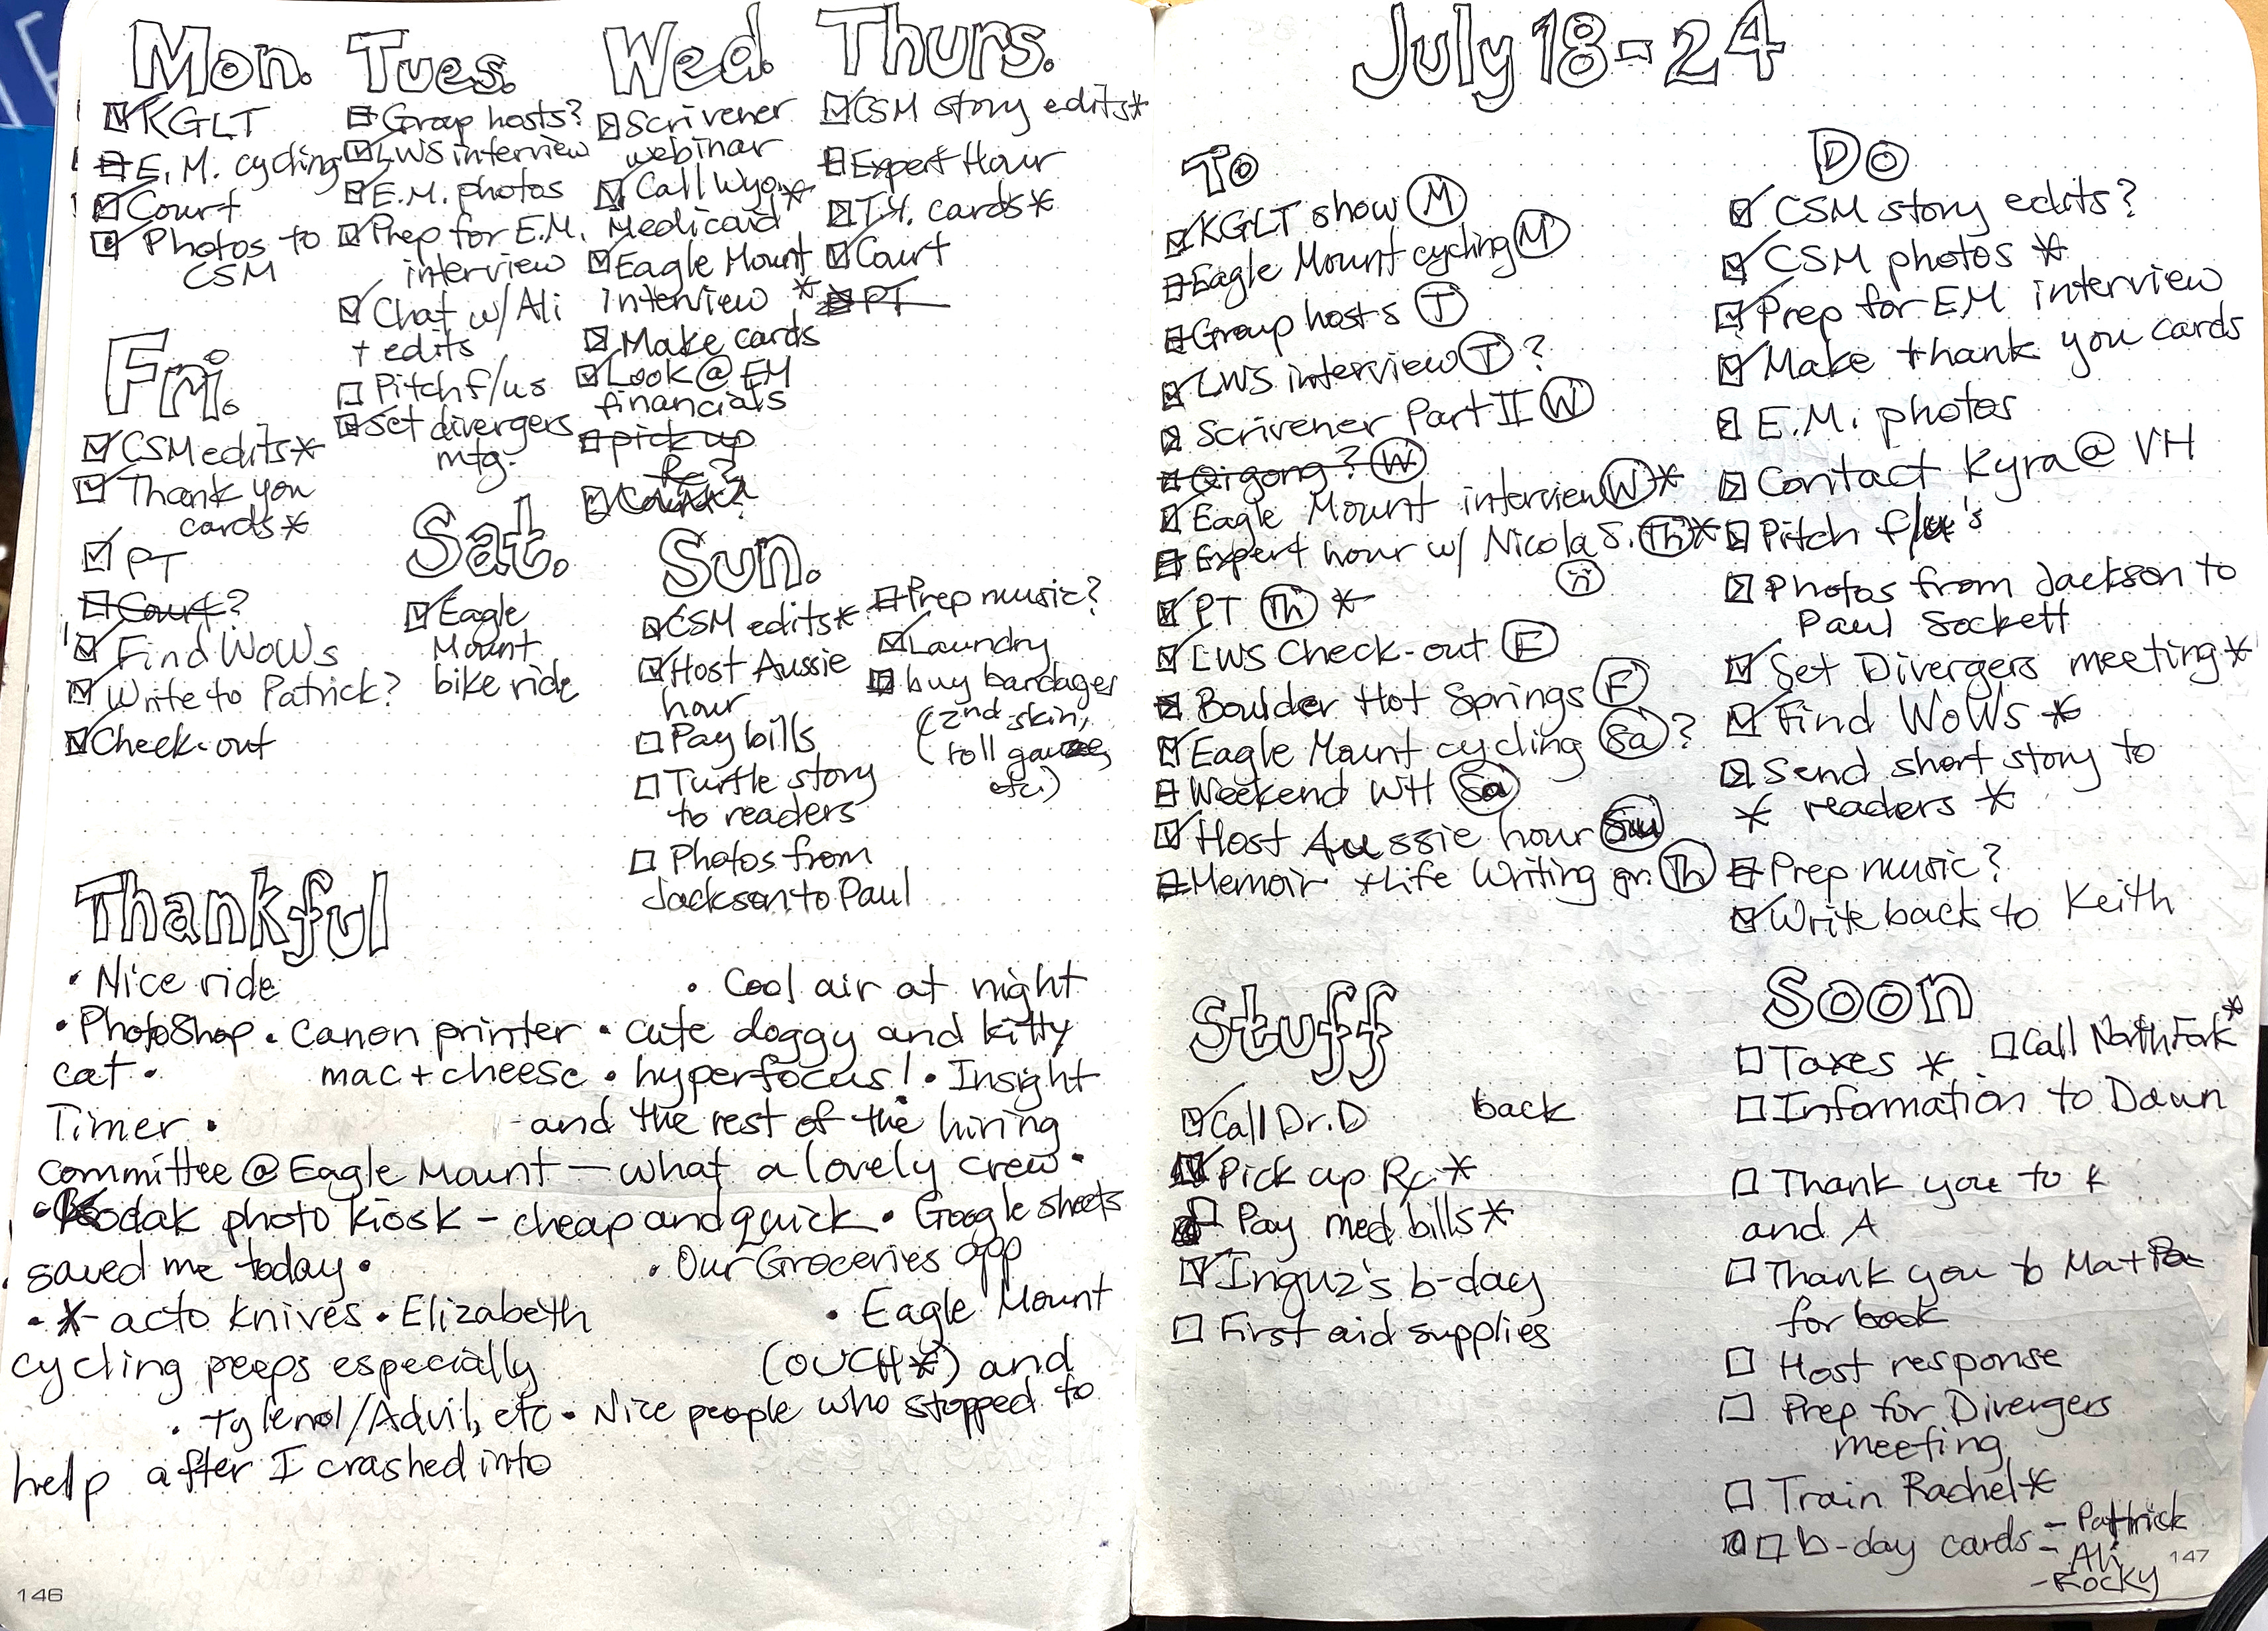 Mon.
KGLT
E.M. cycling
Court
Photos to
CSM
Tues.
Group hosts?
LWS interview
E.M. photos
Prep for E.M.
interview
Chat w/ Ali
+ edits
Pitch f/us
Set divergers
mtg.
Wed.
Scrivener
webinar
Call Wyo.*
Medicaid
Eagle Mount
interview *
Make cards
Look @ EM
financials
pick up
Rx?
Thurs.
CSM story edits*
Expert Hour
T.Y. cards*
Court
PT
Fri.
CSM edits*
Thank you
cards*
PT
Court?
Find WoWs
Write to Patrick?
Check-out
Sat.
Eagle
Mount
bike ride
Sun.
CSM edits*
Host Aussie
hour
Pay bills
Turtle story
to readers
Photos from
Jackson to Paul
Prep music?
Laundry
buy bandages
(2nd skin,
(roll gauze,
etc.)
Thankful
• Nice ride • Cool air at night
• PhotoShop • Canon printer • cute doggy and kitty
cat • mac + cheese • hyperfocus! • Insight
Timer • and the rest of the hiring
committee @ Eagle Mount — what a lovely crew •
• Kodak photo kiosk - cheap and quick • Google sheets
saved me today • • Our Groceries app
• X-acto knives • Elizabeth • Eagle Mount
cycling peeps especially (OUCH*) and
• Tylenol/Advil, etc • Nice people who stopped to
help after I crashed into
146
July 18-24
To
KGLT show M
Eagle Mount cycling M
Group hosts T
LWS interview T ?
Scrivener Part II W
Qigong? W
Eagle Mount interview W *
Expert hour w/ Nicola S. Th *
n
PT Th *
LWS Check-out F
Boulder Hot Springs F
Eagle Mount cycling Sa ?
Weekend WH Sa
Host Aussie hour Su
Memoir + Life Writing gr. Th
Do
CSM story edits?
CSM photos *
Prep for EM interview
Make thank you cards
E.M. photos
Contact Kyra @ VH
Pitch f/u's
Photos from Jackson to
Paul Sockett
Set Divergers meeting*
Find WoWs *
Send short story to
* readers *
Prep music?
Write back to Keith
Stuff
Call Dr. D back
Pick up Rx *
Pay med bills*
Inguz's b-day
First aid supplies
Soon
Taxes *
Call North Fork*
Information to Dawn
Thank you to K
and A
Thank you to Mat
for book
Host response
Prep for Divergers
meeting
Train Rachel*
b-day cards - Patrick
- Ali
- Rocky
147